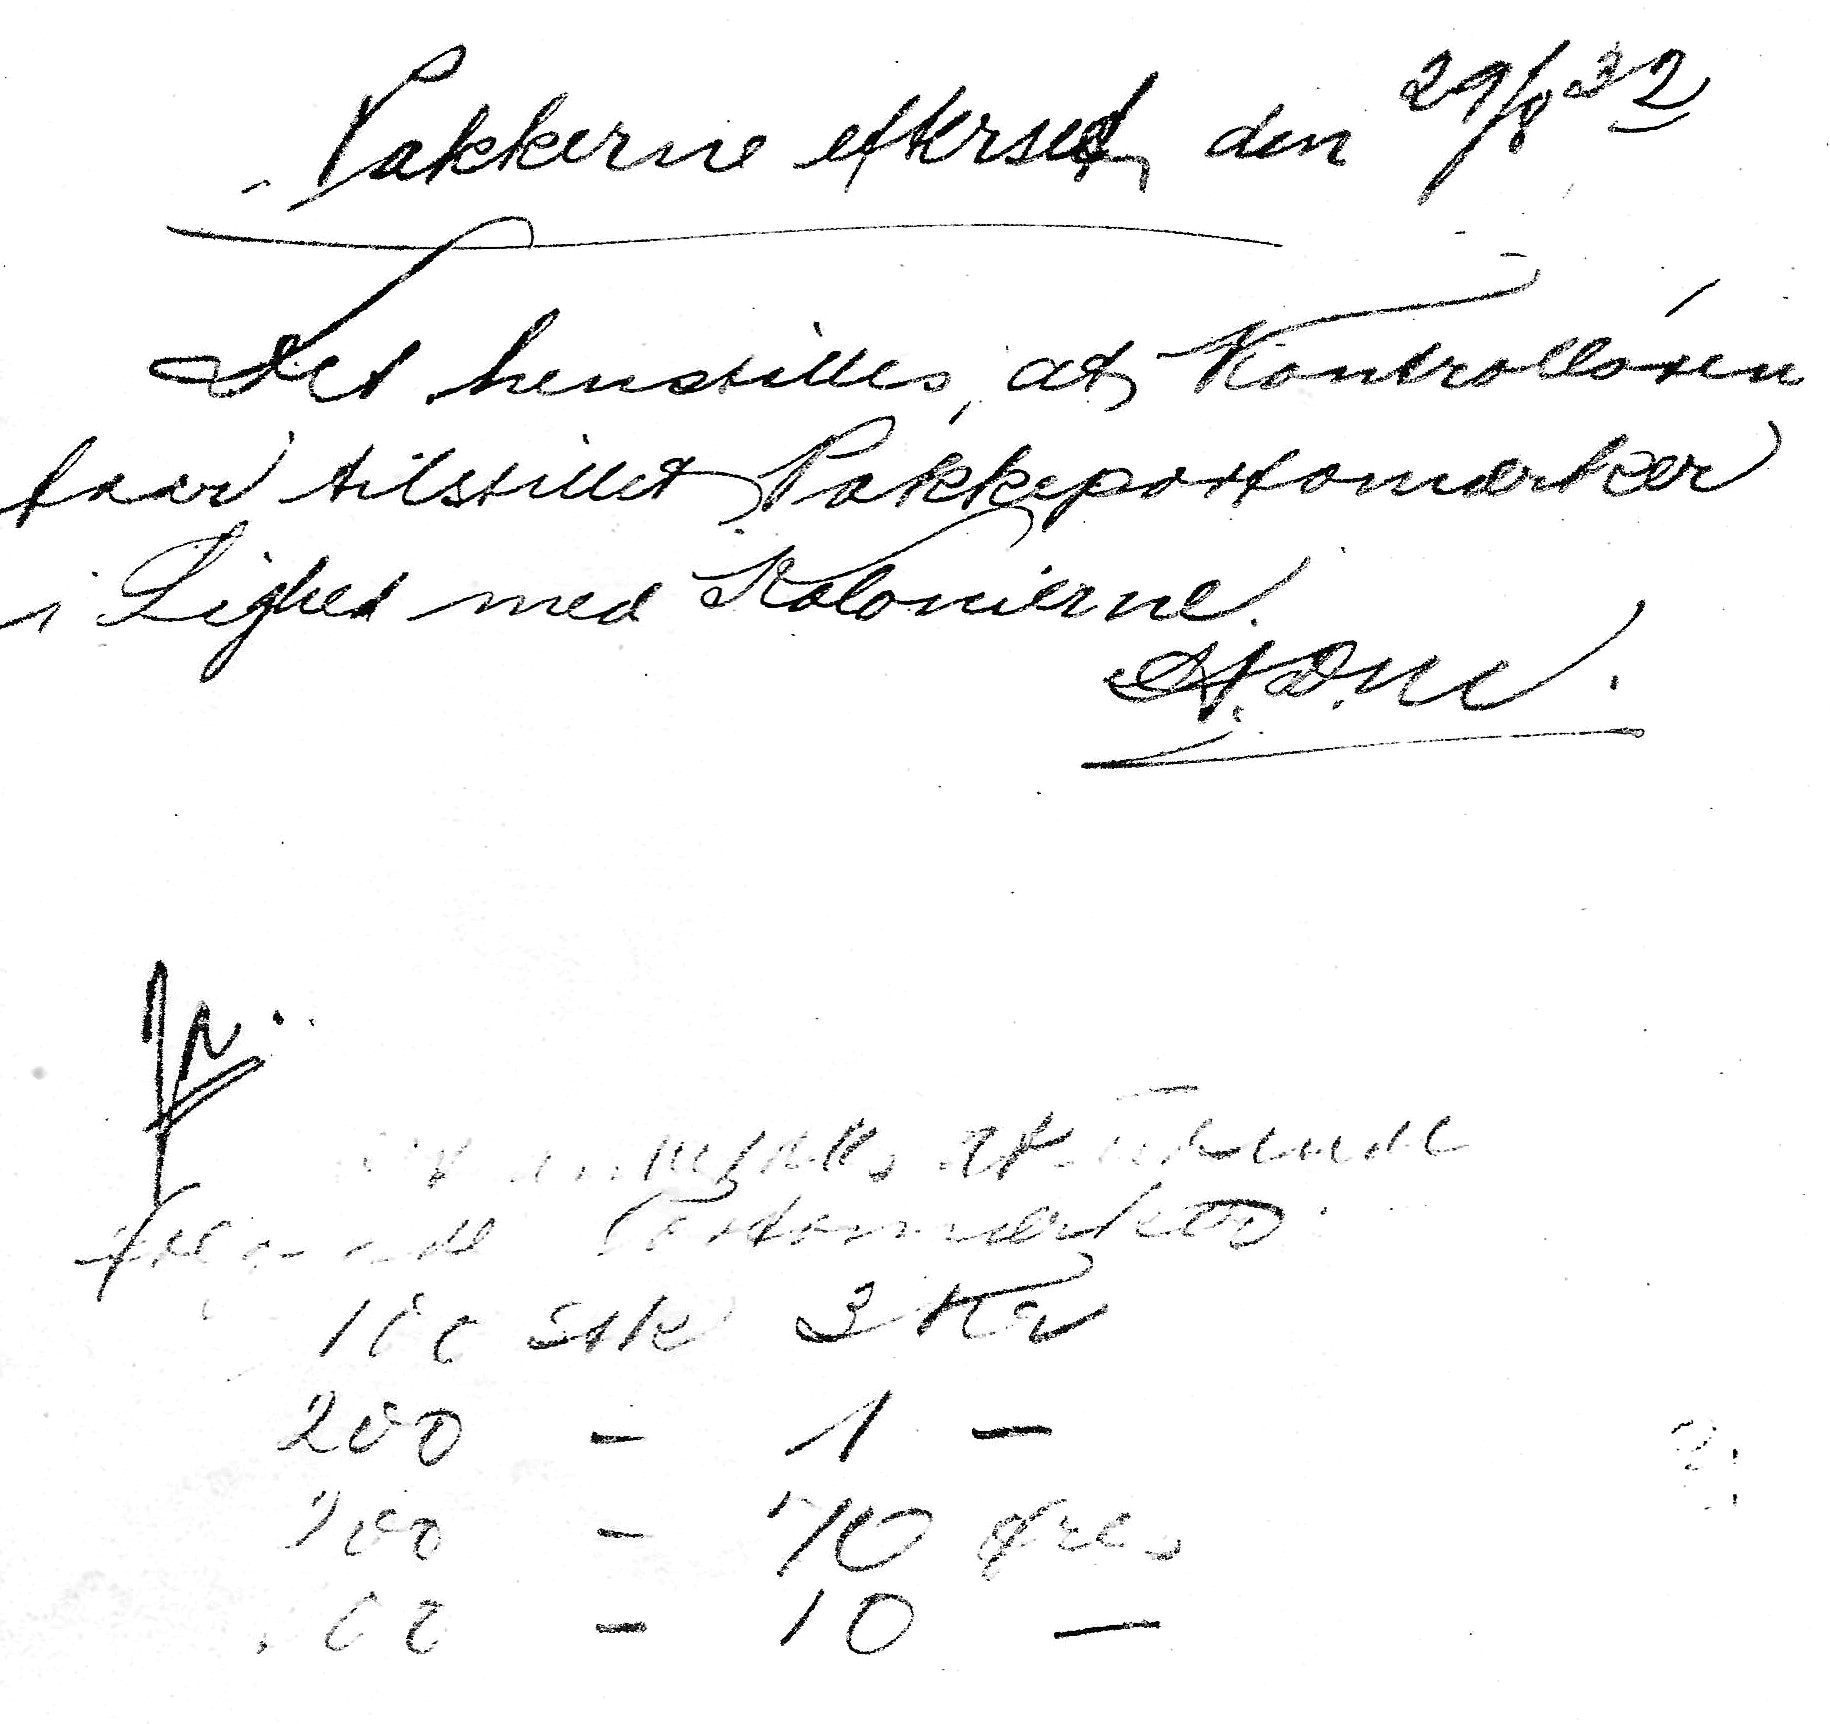 Pakkerne efterset, den 29/8 32
Det henstilles, at Kontrolløren
faar tilstillet Pakkeportomærker
i Lighed med Kolonierne.
at tilsende
følgende Portomærker
100 Stk 3 Kr
200 - 1 -
200 - 70 Øres
00 - 10 -